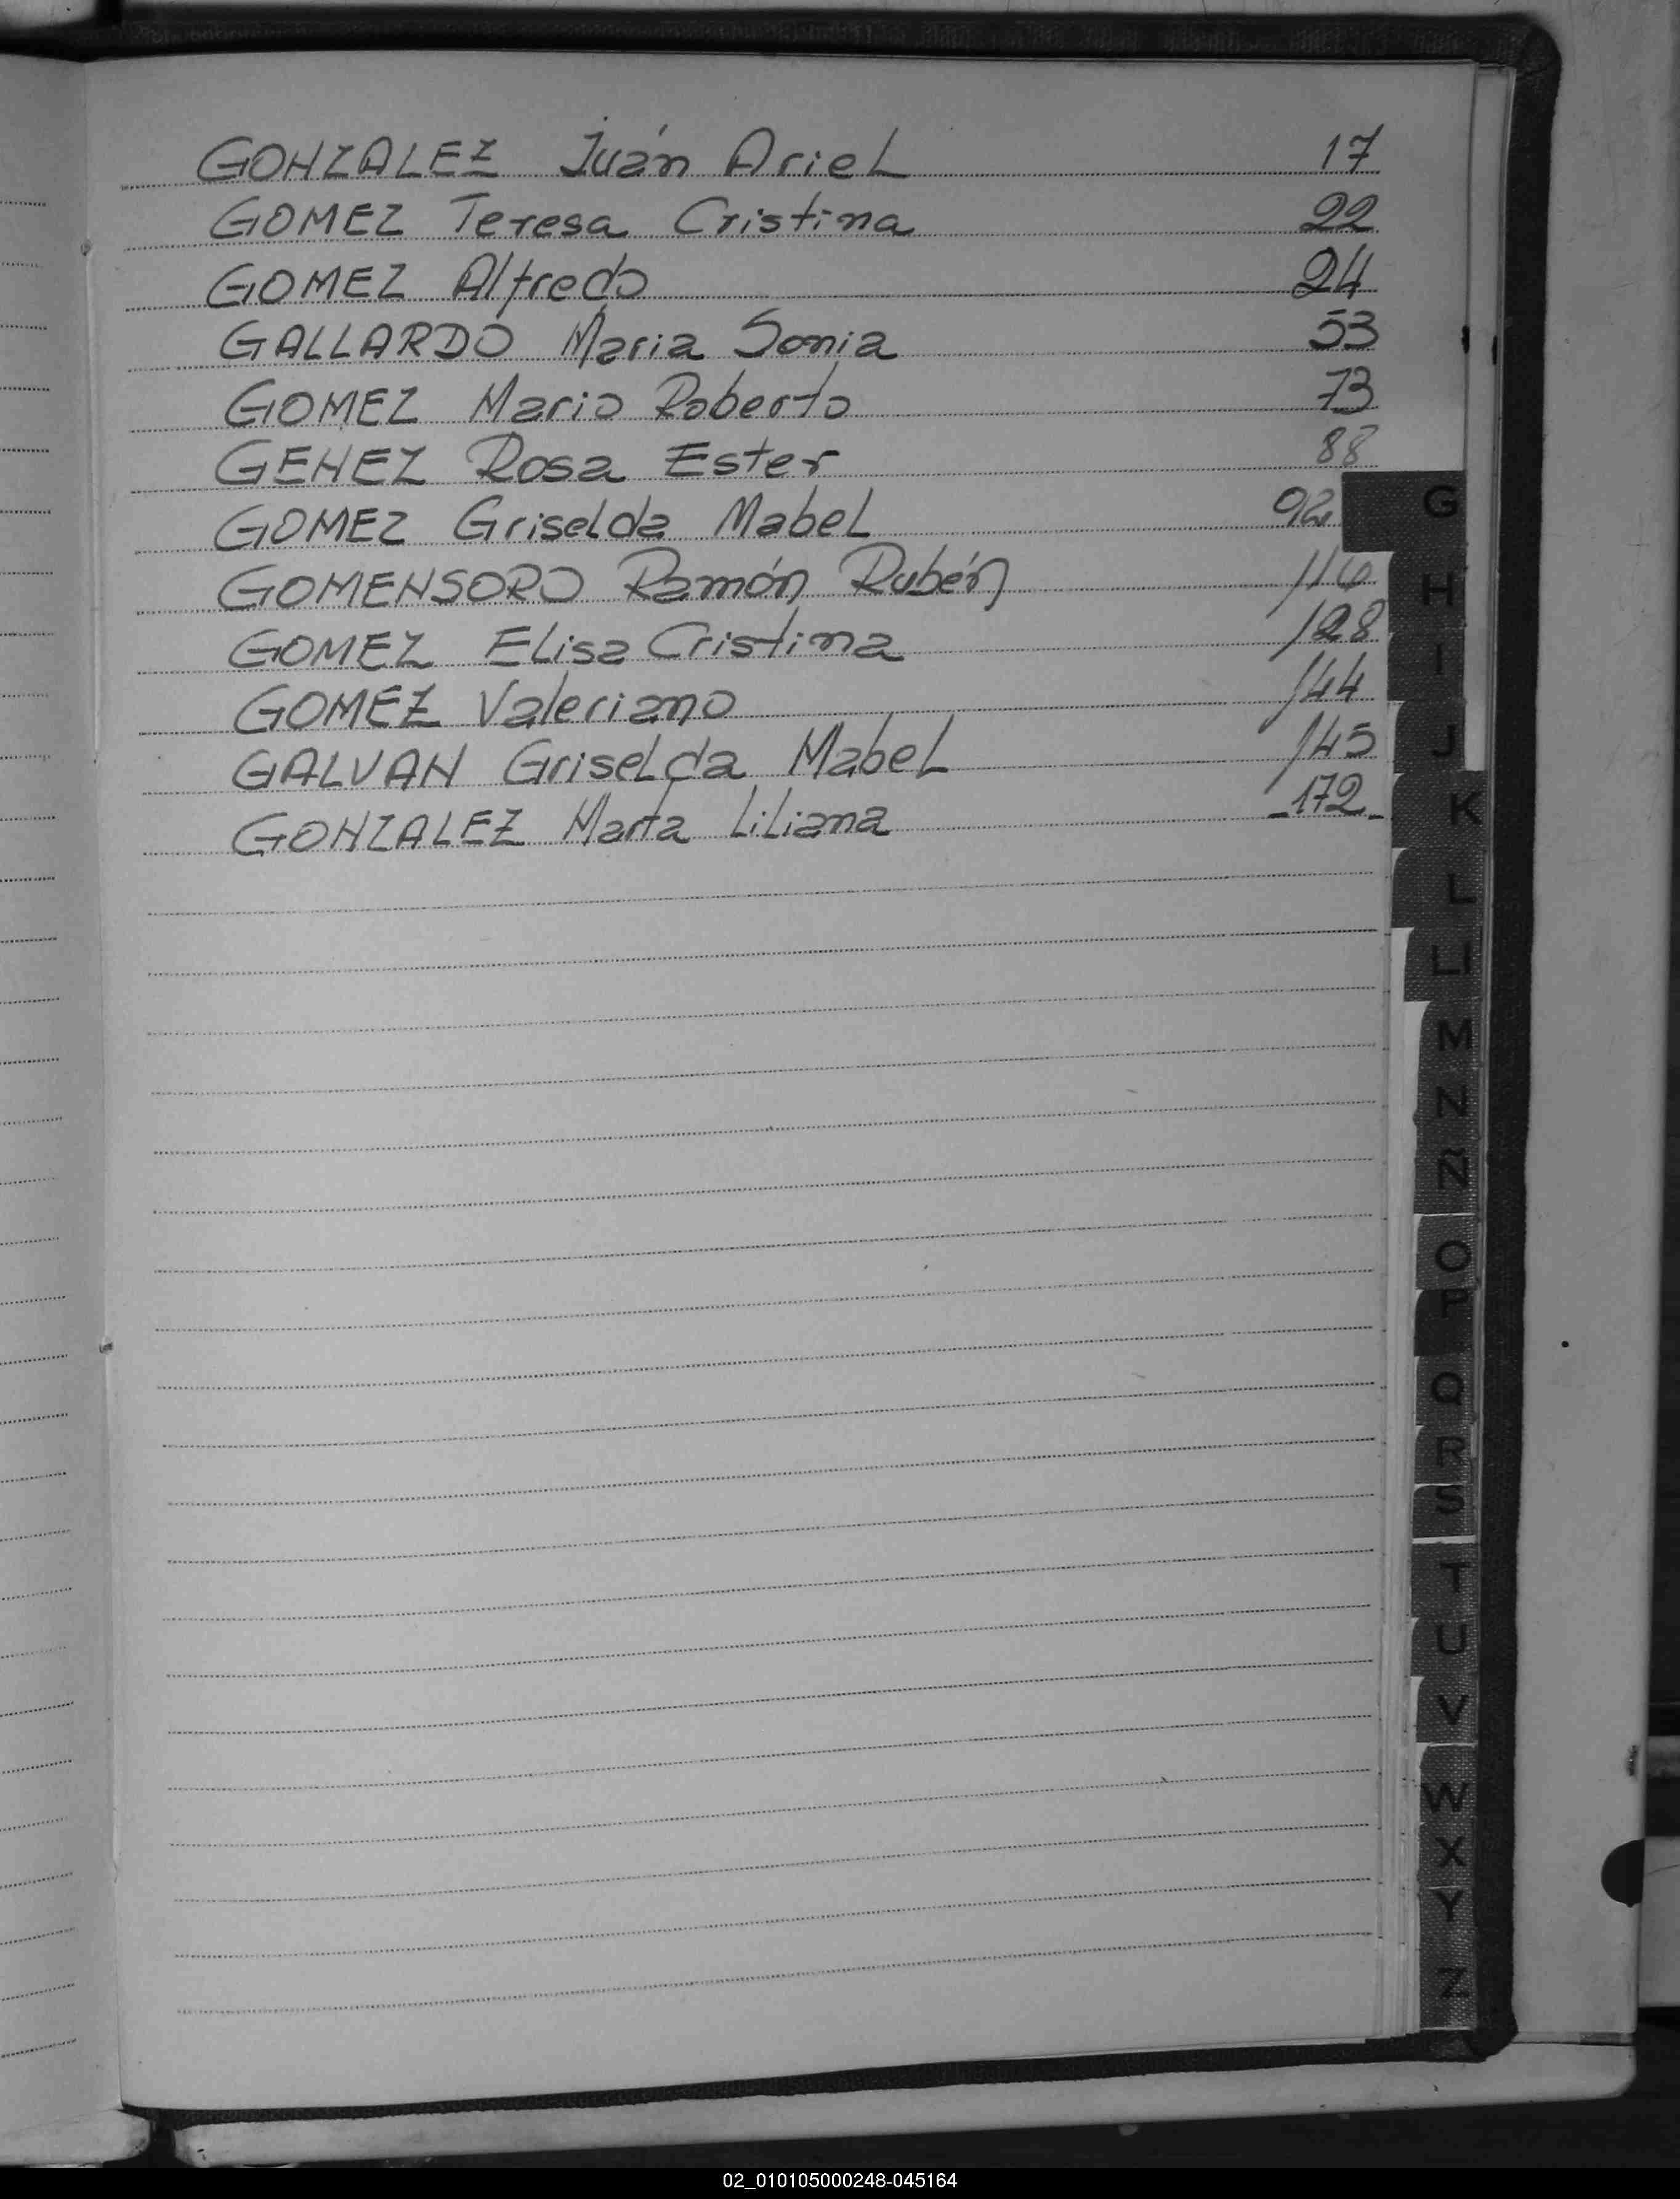 GONZALEZ Juán Ariel 17
GOMEZ Teresa Cristina 22
GOMEZ Alfredo 24
GALLARDO Maria Sonia 53
GOMEZ Mario Roberto 73
GENEZ Rosa Ester 88
GOMEZ Griselda Mabel 92
GOMENSORO Ramón Rubén 116
GOMEZ Elisa Cristina 128
GOMEZ Valeriano 144
GALVAN Griselda Mabel 145
GONZALEZ Marta Liliana 172
G
H
I
J
K
L
LL
M
N
Ñ
O
P
Q
R
S
T
U
V
W
X
Y
Z
02_010105000248-045164